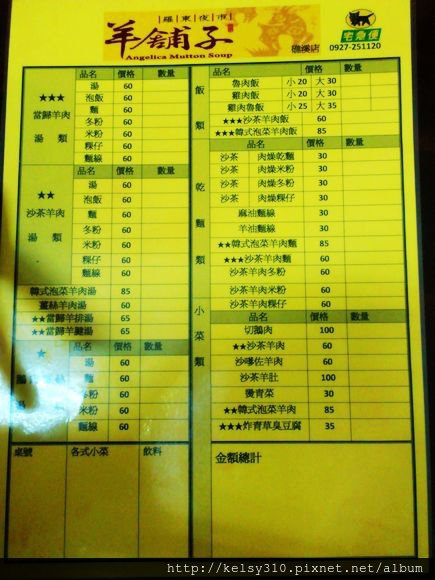 羅東夜市
羊舖子
Angelica Mutton Soup
礁溪店
宅急便
0927-251120
品名 價格 數量
★★★
當歸羊肉
湯 類
湯 60
泡飯 60
麵 60
冬粉 60
米粉 60
粿仔 60
麵線 60
品名 價格 數量
★★
沙茶羊肉
湯 類
湯 60
泡飯 60
麵 60
冬粉 60
米粉 60
粿仔 60
麵線 60
韓式泡菜羊肉湯 85
薑絲羊肉湯 60
★★當歸羊排湯 65
★★當歸羊腱湯 65
品名 價格 數量
★
湯 60
麵 60
冬粉 60
米粉 60
麵線 60
桌號 各式小菜 飲料
飯類
品名 價格 數量
魯肉飯 小20 大30
雞肉飯 小20 大30
雞肉魯飯 小25 大35
★★★沙茶羊肉飯 60
★★★韓式泡菜羊肉飯 85
乾麵類
品名 價格 數量
沙茶 肉燥乾麵 30
沙茶 肉燥米粉 30
沙茶 肉燥冬粉 30
沙茶 肉燥粿仔 30
麻油麵線 30
羊油麵線 30
★★韓式泡菜羊肉麵 85
★★★沙茶羊肉麵 60
沙茶羊肉冬粉 60
沙茶羊肉米粉 60
沙茶羊肉粿仔 60
小菜類
品名 價格 數量
切鵝肉 100
★★沙茶羊肉 60
沙嗲佐羊肉 60
沙茶羊肚 100
燙青菜 30
★★韓式泡菜羊肉 60
★★★炸青草臭豆腐 35
金額總計
http://kelsy310.pixnet.net/album